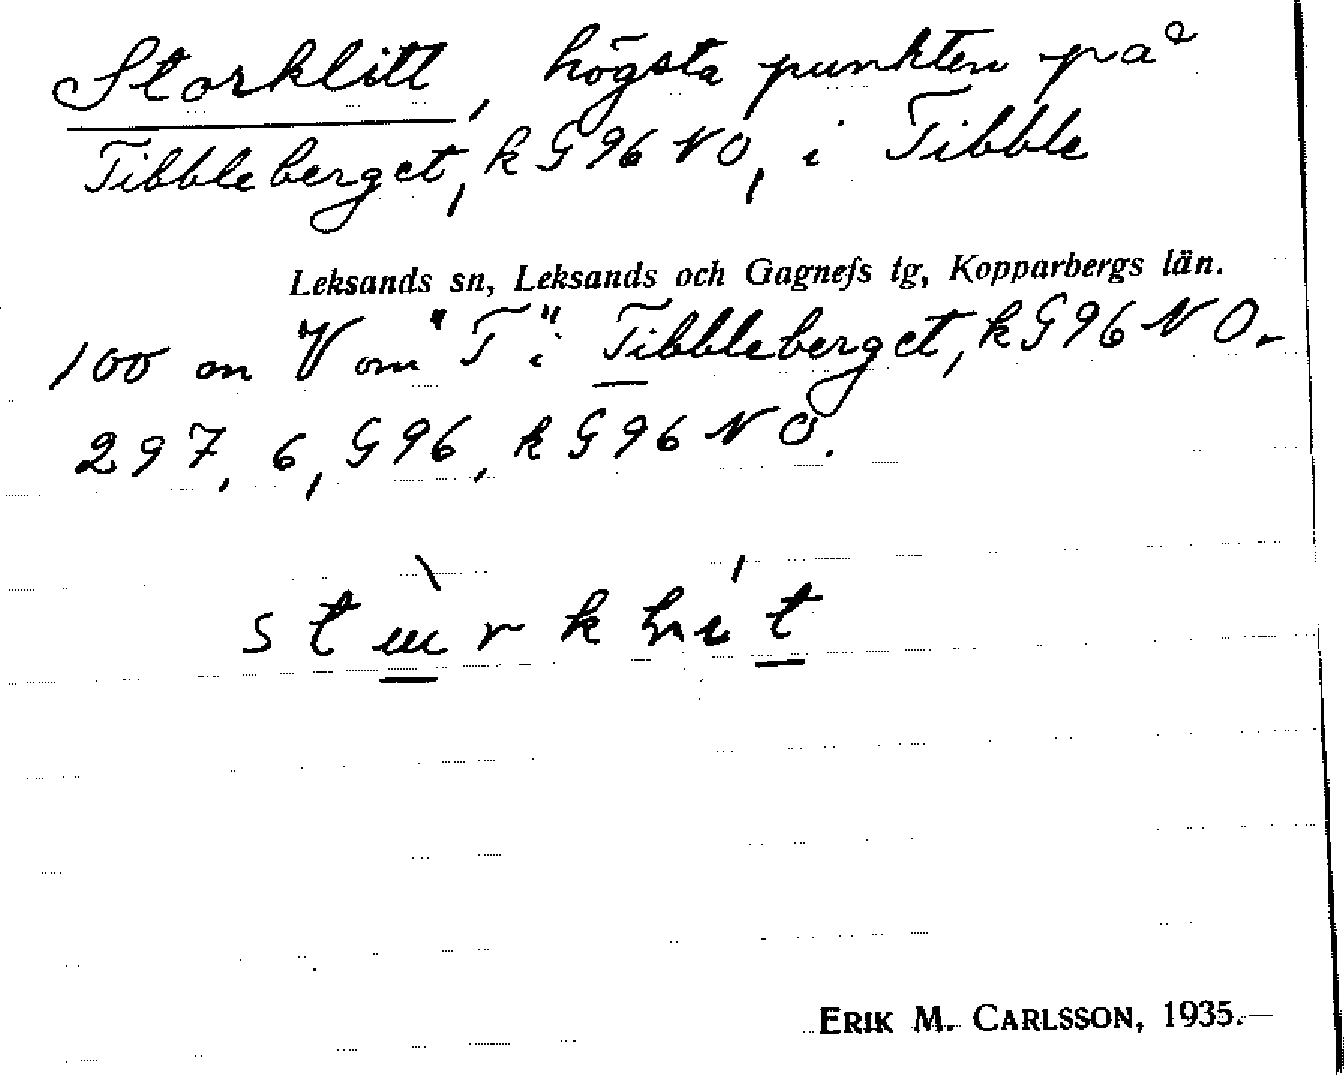 Storklitt, högsta punkten på
Tibbleberget, k G 96 NO, i Tibble
Leksands sn, Leksands och Gagnefs tg, Kopparbergs län.
100 m V om "T" i Tibbleberget, k G 96 NO.
297, 6, G 96, k G 96 NO.
ERIK M. CARLSSON, 1935.